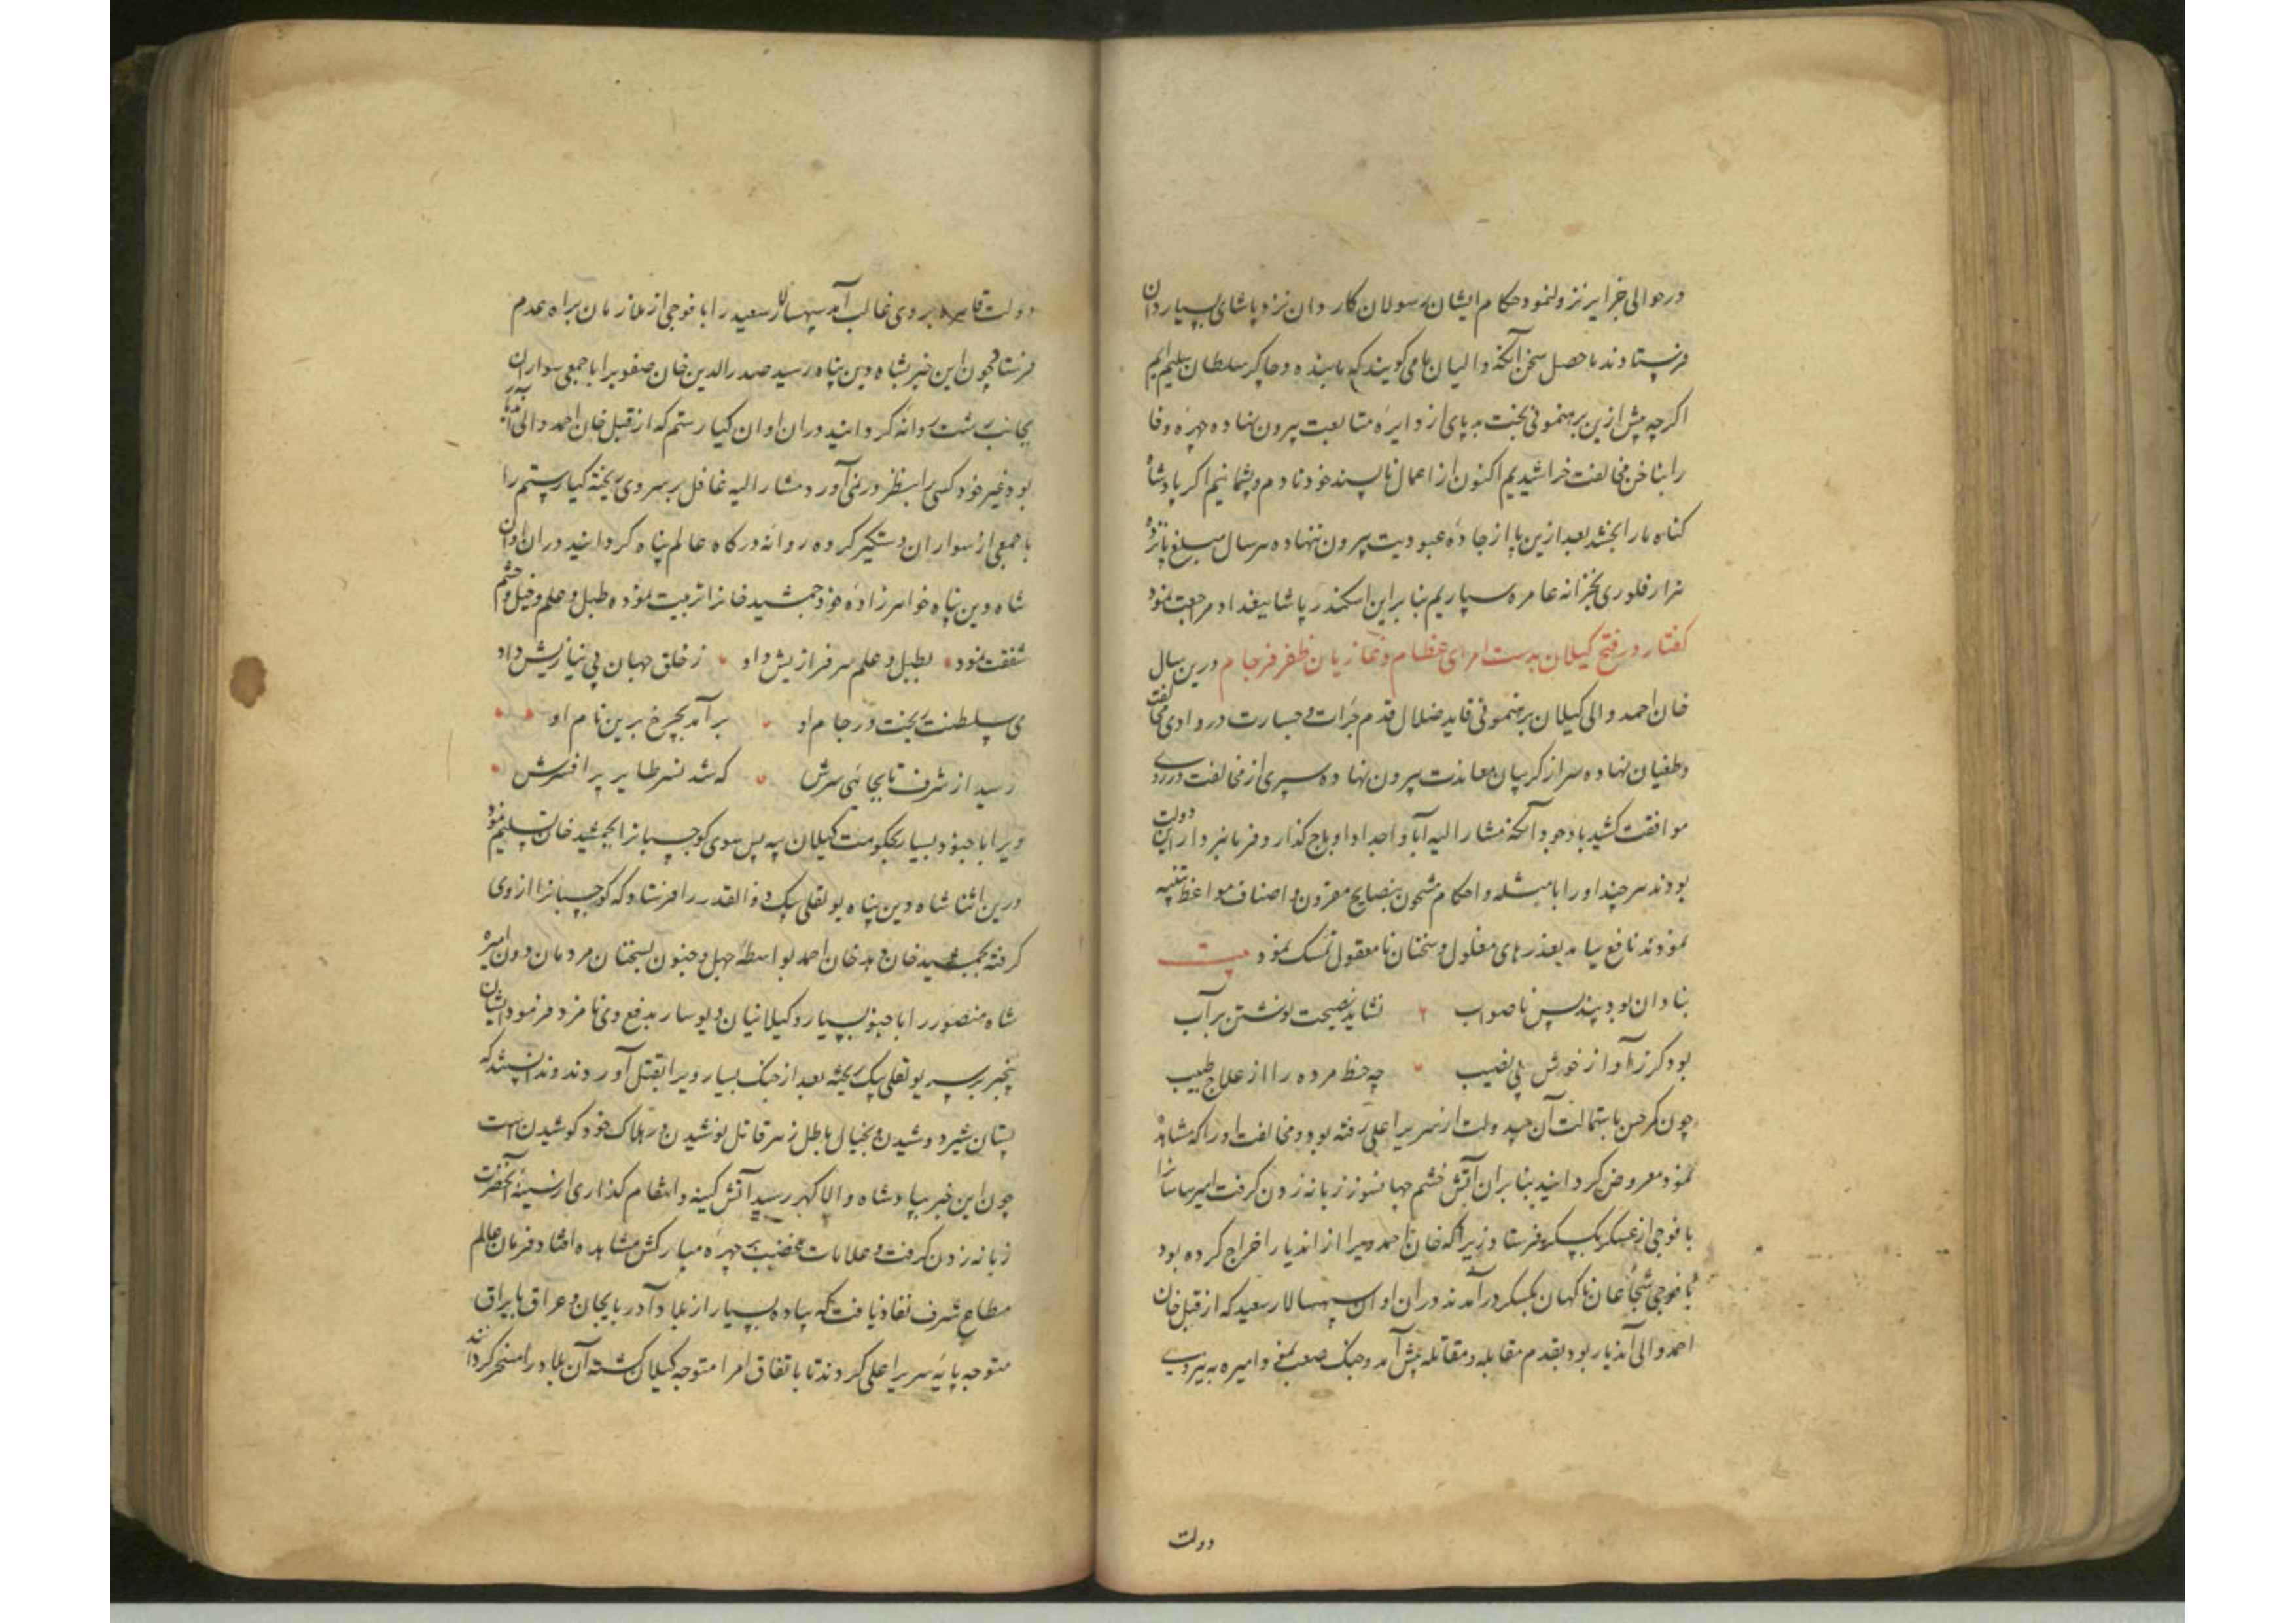 در حوالی جزایر نزول نمود حکام ایشان رسولان کاردان نزد پاشای بسیاردان
فرستادند ما حصل سخن آنکه والیان ما می کویند که ما بنده و چاکر سلطان سلیم ایم
اکرچه پیش ازین برهنمونی بخت بد پای از دایره متابعت بیرون نهاده چهره وفا
را بناخن مخالفت خراشیدیم اکنون از اعمال ناپسند خود نادم و پشمانیم اکر پادشاه
کناه ما را بخشد بعد ازین پا از جاده عبودیت بیرون ننهاده هر سال مبلغ پانزده
هزار فلوری بخزانه عامره سپاریم بنابراین اسکندر پاشا ببغداد مراجعت نمود
کفتار در فتح کیلان بدست امرای عظام و غازیان ظفر فرجام درین سال
خان احمد والی کیلان برهنمونی قاید ضلال قدم جرات و جسارت در وادی مخالفت
و طغیان نهاده سر از کریبان معاندت بیرون نهاده سپری از مخالفت در روی
موافقت کشید با وجود آنکه مشارالیه آبا و اجداد او باج کذار و فرمانبردار این دولت
بودند هر چند او را بامثله و احکام مشحون بنصایح مقرون و اصناف مواعظ تنبیه
نمودند نافع نیامد بعذرهای معلول و سخنان نامعقول تمسک نمود بیت
بنادان بود پند بس ناصواب نشاید نصیحت نوشتن بر آب
بود کر ز آواز خورش بی نصیب چه حظ مرده را از علاج طبیب
چون کرحسن باستمالت آن بیدولت از سریر اعلی رفته بود و مخالفت او را که مشاهده
نموده معروض کردانید بنابران آتش خشم جهانسوز زبانه زدن کرفت امیره ساسانرا
با فوجی از عسکر بکسکر فرستاد زیرا که خان احمد ویرا از اندیار اخراج کرده بود
با فوجی شجاعان ناکهان بکسکر درآمدند دران اوان سپهسالار سعید که از قبل خان
احمد والی آندیار بود بقدم مقابله و مقاتله پیش آمد و جنک صعب نمود امیره به نیروی
دولت
دولت قاهره بر وی غالب آمد سپهسالار سعید را با فوجی از ملازمان براه عدم
فرستاد چون این خبر بشاه دین پناه رسید صدرالدین خان صفویرا با جمعی سواران
بجانب رشت روانه کردانید دران اوان کیا رستم که از قبل خان احمد والی آندیار
بوده غیر خود کسی را بنظر در نمی آورد مشارالیه غافل بر سر وی ریخته کیا رستم را
با جمعی از سواران دستکیر کرده روانه درکاه عالم پناه کردانید دران اوان
شاه دین پناه خواهرزاده خود جمشید خانرا تربیت نموده طبل و علم و خیل و حشم
شفقت نمود بطبل و علم سرفرازیش داد ز خلق جهان بی نیازیش داد
می سلطنت ریخت در جام او برآمد بچرخ برین نام او
رسید از شرف تا بجائی سرش که شد نسر طایر پر افسرش
ویرا با جنود بسیار بحکومت کیلان بیه پس کوچسبانرا بجمشید خان تسلیم نمود
درین اثنا شاه دین پناه یولقلی بیک ذوالقدر را فرستاد که کوچسبانرا از وی
کرفته بجمشید خان دهد خان احمد بواسطه جهل و جنون بسخنان مردمان دون امیره
شاه منصور را با جنود بسیار و کیلانیان دیوسار بدفع وی نامزد فرمود ایشان
بیخبر بر سر یولقلی بیک ریخته بعد از جنک بسیار ویرا بقتل آوردند ندانستند که
پستان شیر دوشیدن و بخیال باطل زهر قاتل نوشیدن در هلاک خود کوشیدن است
چون این خبر بپادشاه والا کهر رسید آتش کینه و انتقام کذاری از سینه آنحضرت
زبانه زدن کرفت و علامات غضب بر چهره مبارکش مشاهده افتاد فرمان عالم
مطاع شرف نفاذ یافت که پیاده بسیار از بلاد آذربایجان و عراق با یراق
متوجه پایه سریر اعلی کردند تا باتفاق امرا متوجه کیلان کشته آن بلاد را مسخر کردانند